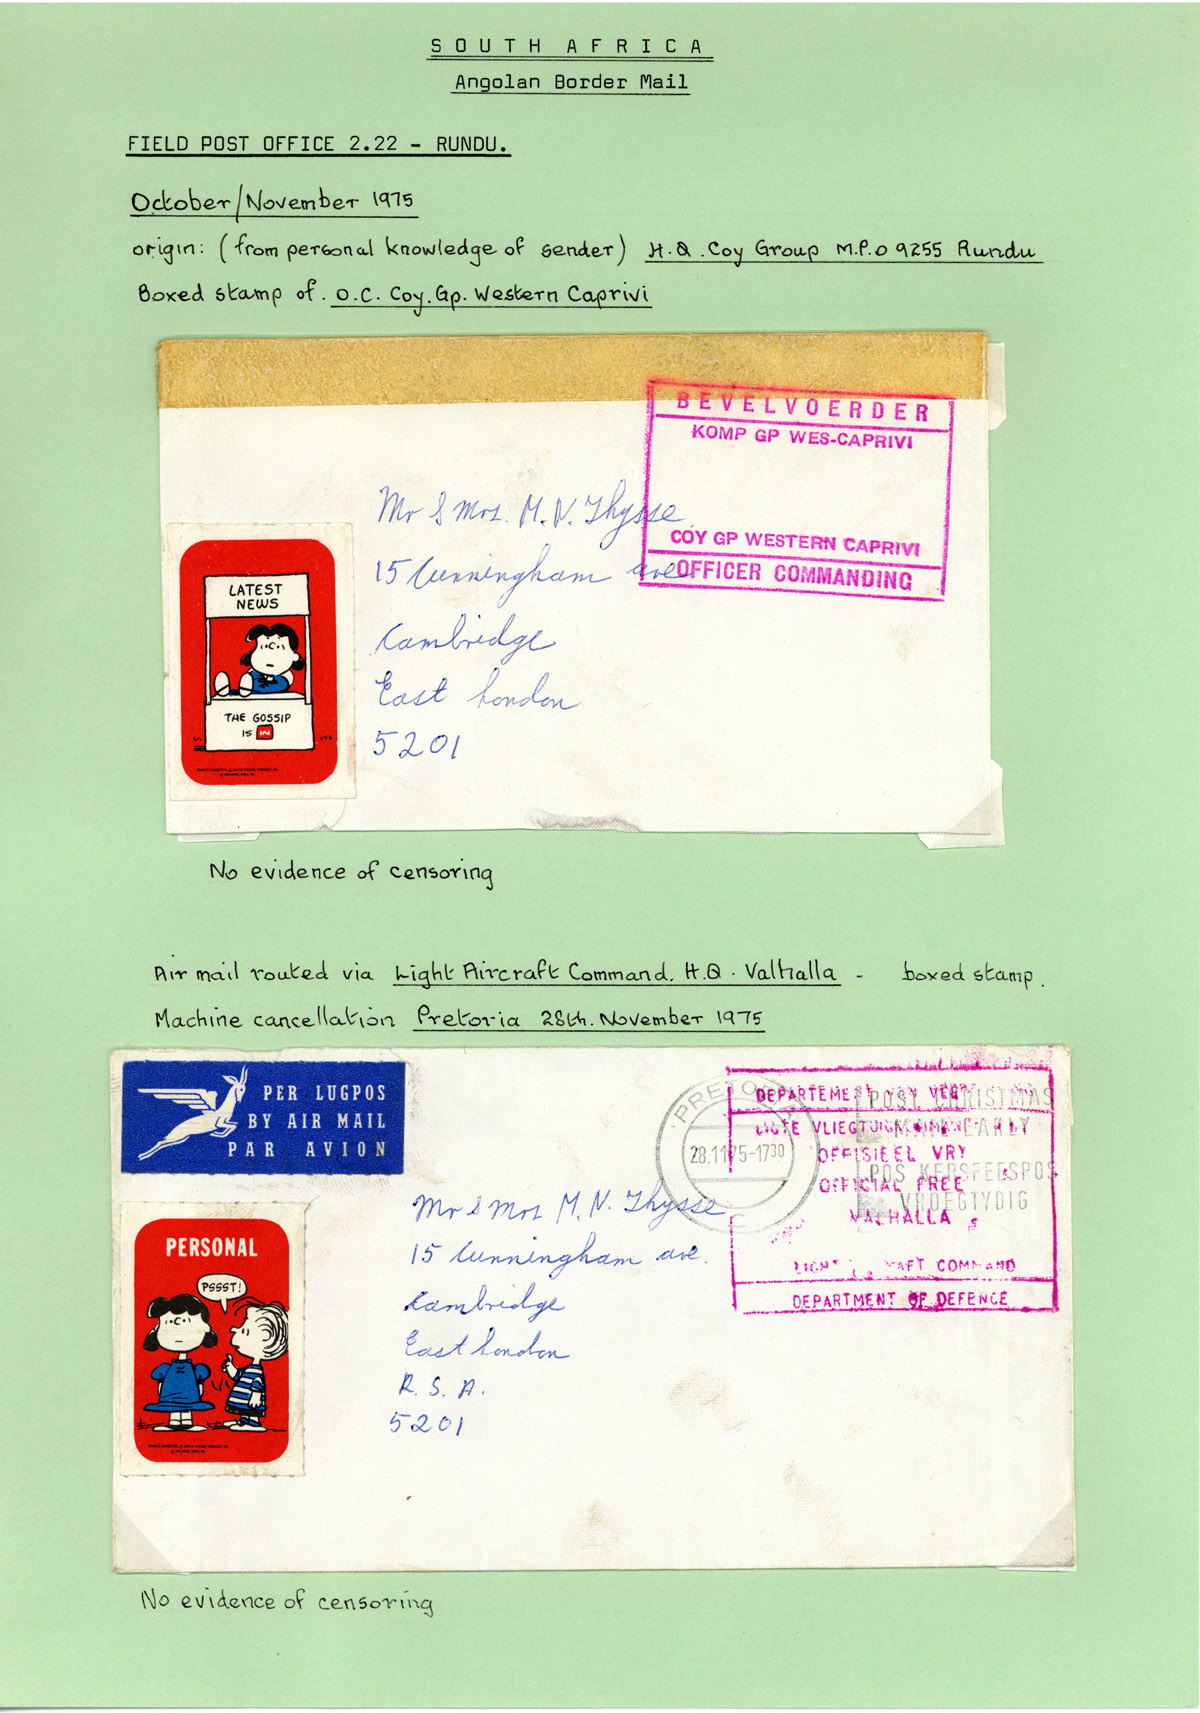 SOUTH AFRICA
Angolan Border Mail
FIELD POST OFFICE 2.22 - RUNDU.
October/November 1975
origin: (from personal knowledge of sender) H.Q. Coy Group M.P.O 9255 Rundu
Boxed stamp of. O.C. Coy. Gp. Western Caprivi
BEVELVOERDER
KOMP GP WES-CAPRIVI
COY GP WESTERN CAPRIVI
OFFICER COMMANDING
Mr & Mrs. M. N. Thysse
15 Cunningham ave
Cambridge
East London
5201
LATEST
NEWS
THE GOSSIP
IS IN
No evidence of censoring
Air mail routed via Light Aircraft Command. H.Q. Valhalla - boxed stamp.
Machine cancellation Pretoria 28th. November 1975
PER LUGPOS
BY AIR MAIL
PAR AVION
PRETORIA
28.11.75-1730
C
POST CHRISTMAS
MAIL EARLY
POS KERSFEESPOS
VROEGTYDIG
DEPARTEMENT VAN
LIGTE VLIEGTUIG
OFFISIEEL VRY
OFFICIAL FREE
VALHALLA
LIGHT AIRCRAFT COMMAND
DEPARTMENT OF DEFENCE
Mr & Mrs M. N. Thysse
15 Cunningham ave.
Cambridge
East London
R. S. A.
5201
PERSONAL
PSSST!
No evidence of censoring